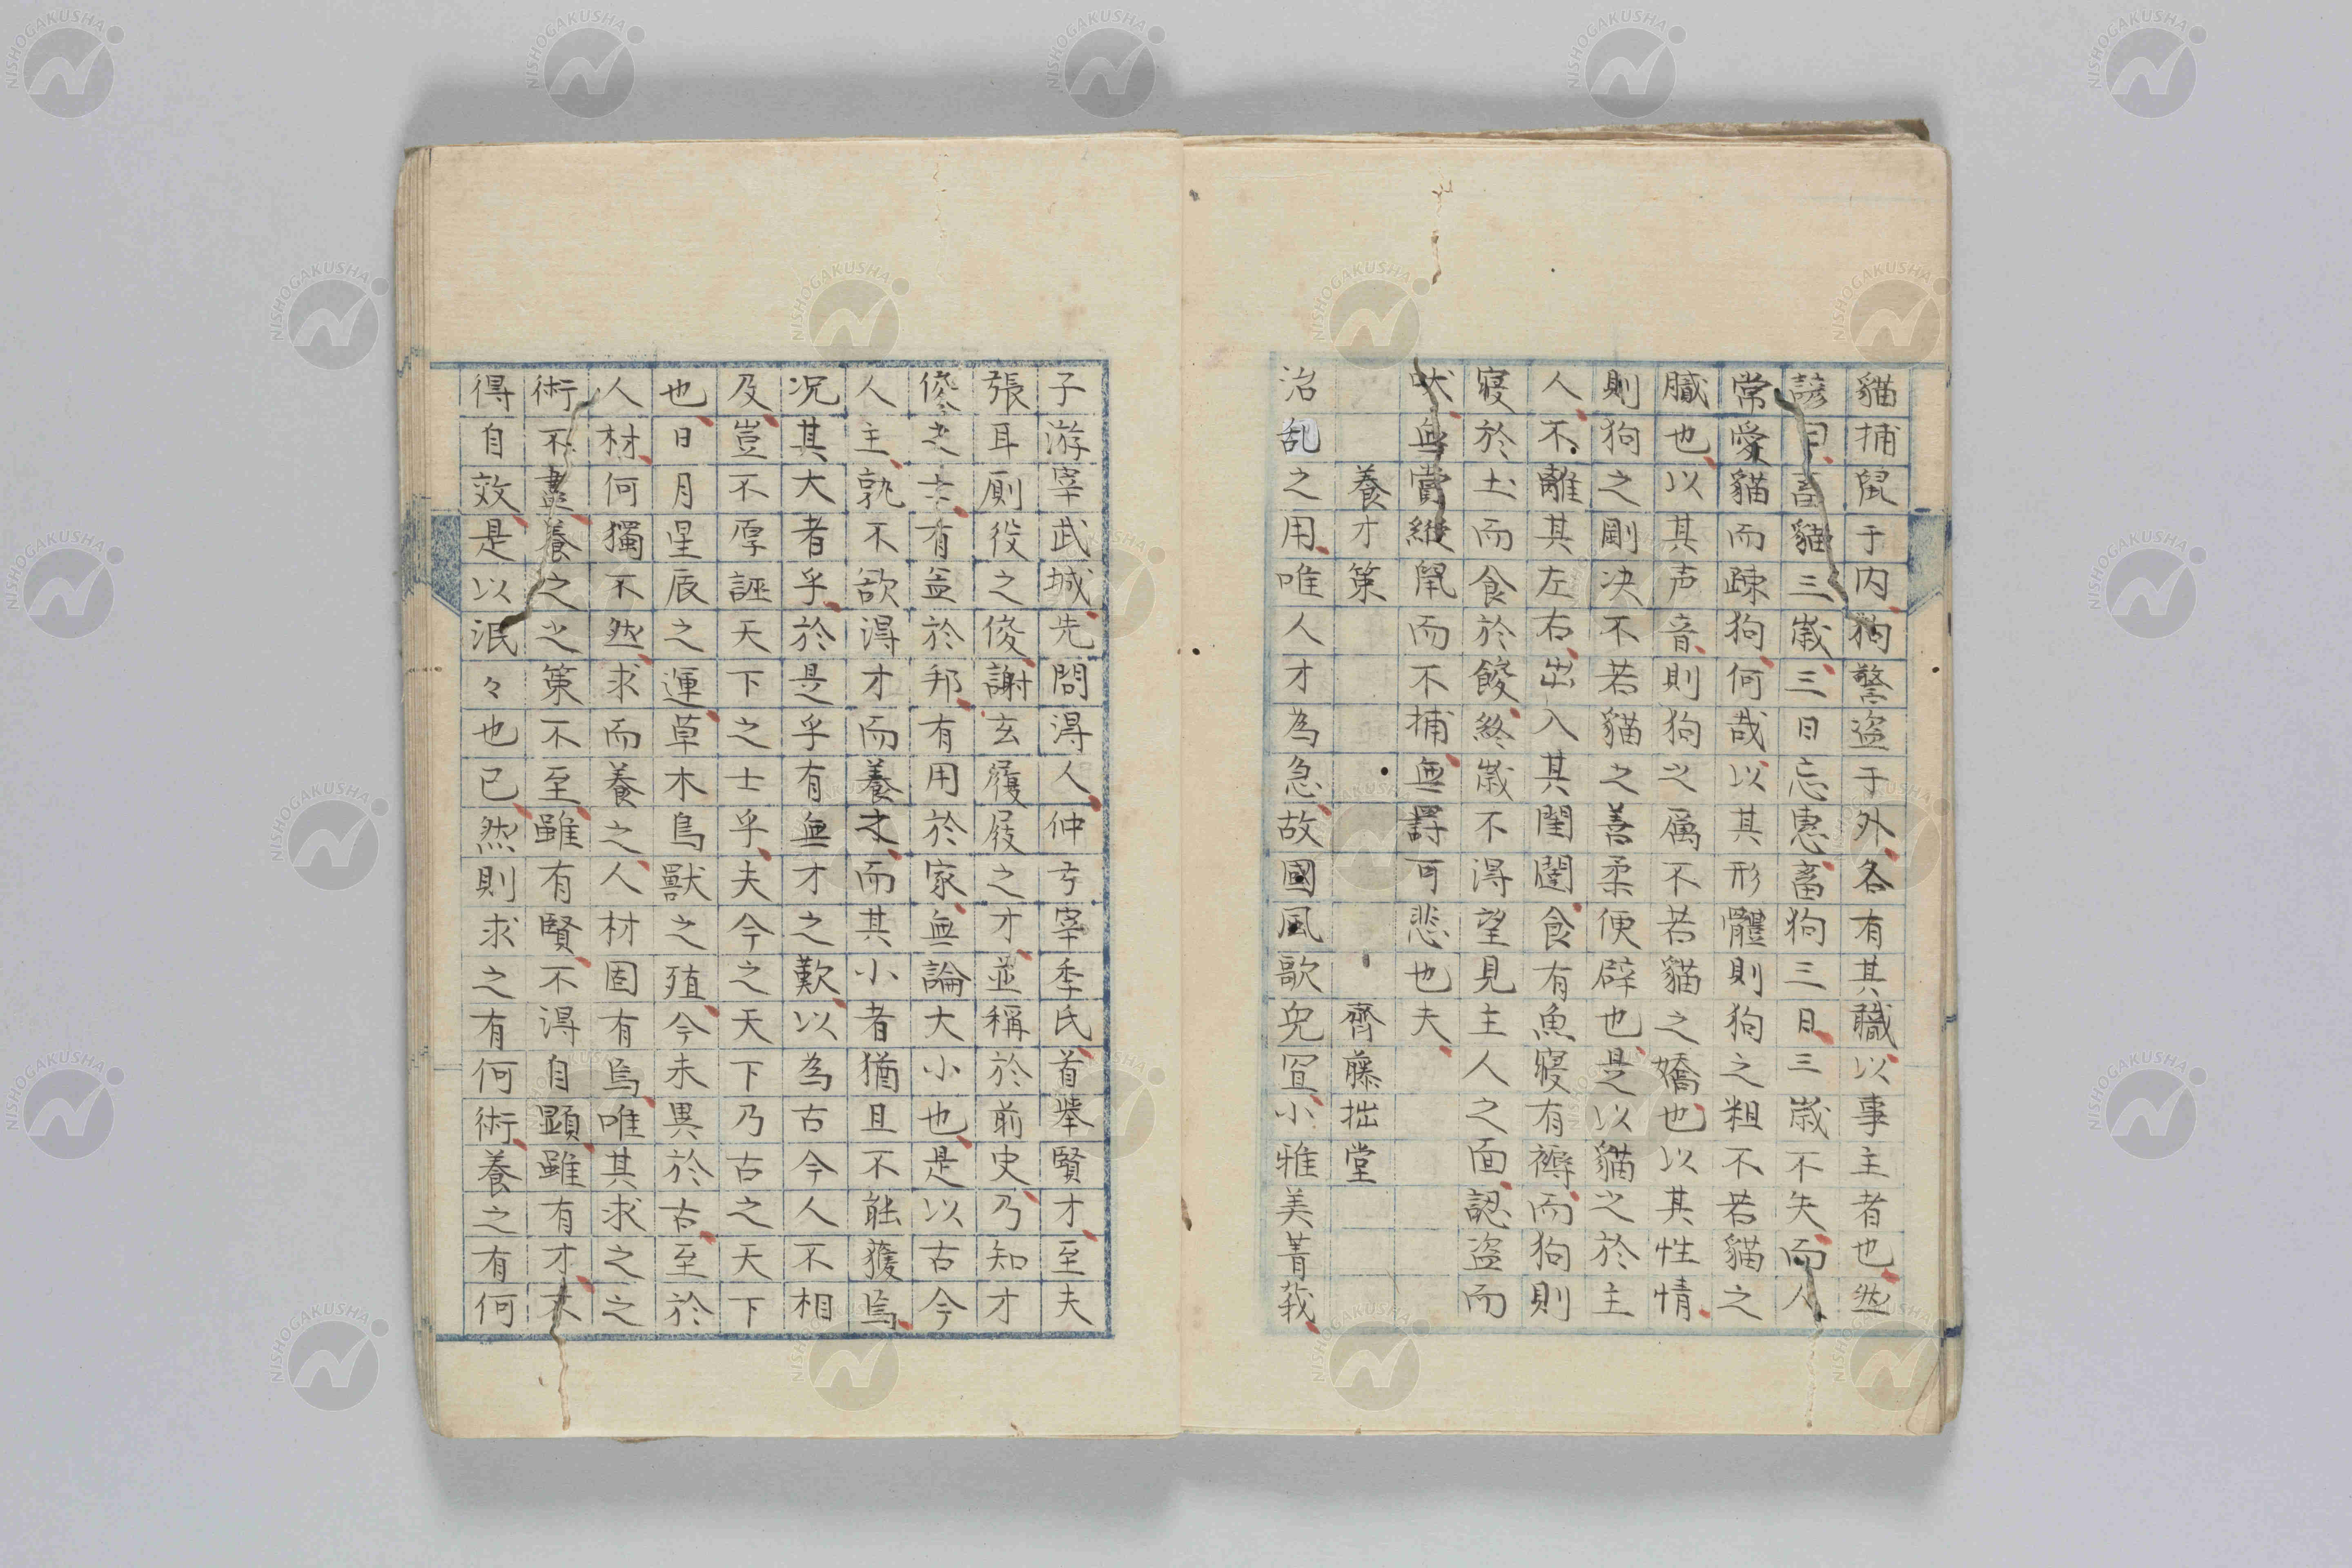 貓捕鼠于内狗警盗于外各有其職以事主者也然
諺曰畜貓三歳三日忘恵畜狗三日三歳不失而人
常愛貓而疎狗何哉以其形體則狗之粗不若貓之
膩也以其声音則狗之厲不若貓之嬌也以其性情
則狗之剛决不若貓之善柔便辟也是以貓之於主
人不離其左右出入其閨闥食有魚寝有褥而狗則
寝於土而食於餕終歳不得望見主人之面認盗而
吠無賞縱鼠而不捕無罸可悲也夫
養才策 齊藤拙堂
治乱之用唯人才為急故國風歌兎罝小雅美菁莪
子游宰武城先問得人仲弓宰季氏首舉賢才至夫
張耳厠役之俊謝玄履屐之才並稱於前史乃知才
俊之士有益於邦有用於家無論大小也是以古今
人主孰不欲得才而養之而其小者猶且不能獲焉
况其大者乎於是乎有無才之歎以為古今人不相
及豈不厚誣天下之士乎夫今之天下乃古之天下
也日月星辰之運草木鳥獸之殖今未異於古至於
人材何獨不然求而養之人材固有焉唯其求之之
術不盡養之之策不至雖有賢不得自顕雖有才不
得自效是以泯々也已然則求之有何術養之有何
NISHOGAKUSHA